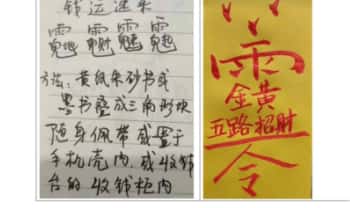 钱运速来
方法：黄纸朱砂书或
墨书叠成三角形状
随身佩带或置于
手机壳内，或收钱
台的收钱柜内
金黄
五路招财
令